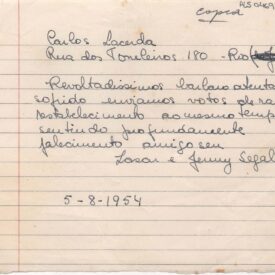 copia
Carlos Lacerda
Rua dos Toneleros 180 - Rio
Revoltadissimos barbaro atenta
sofrido enviamos votos de ra
restabelecimento ao mesmo temp
sentindo profundamente
falecimento amigo seu
Lasar e Jenny Segal
5-8-1954